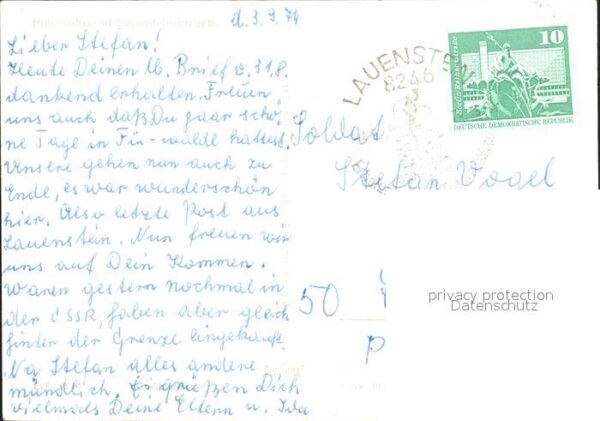 d. 3.9.74
Lieber Stefan!
Heute Deinen lb. Brief v. 31.8.
dankend erhalten. Freuen
uns auch daß Du paar schö-
ne Tage in Fü-walde hattest.
Unsere gehen nun auch zu
Ende, es war wunderschön
hier. Also letzte Post aus
Lauenstein. Nun freuen wir
uns auf Dein Kommen.
Waren gestern nochmal in
der ČSSR, haben aber gleich
hinter der Grenze eingekauft.
Na Stefan alles andere
mündlich. Es grüßen Dich
vielmals Deine Eltern u. Ida
LAUENSTEIN
8246
10
DEUTSCHE DEMOKRATISCHE REPUBLIK
Soldat
Stefan Vogel
50
p
privacy protection
Datenschutz